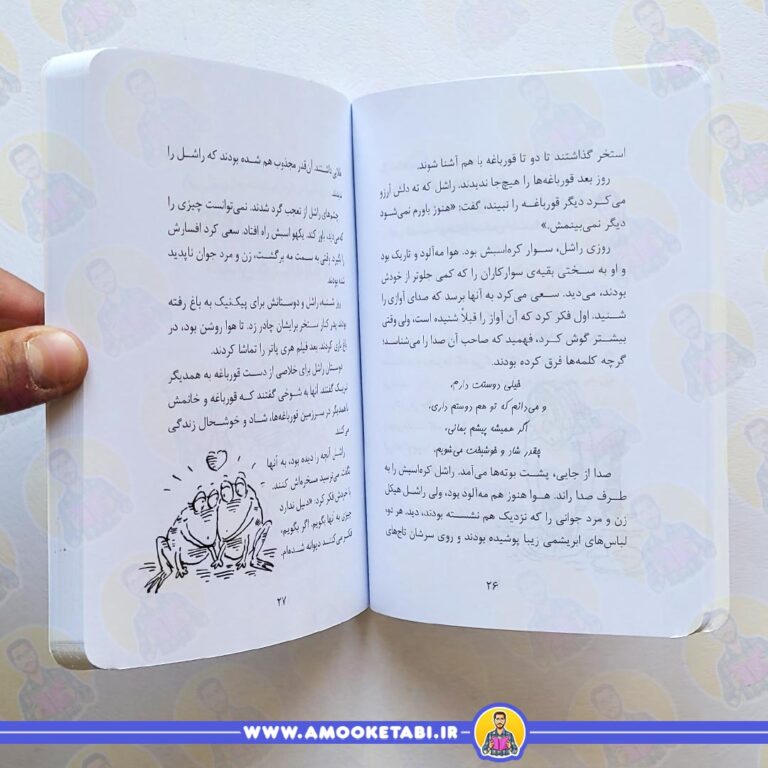 استخر گذاشتند تا دو تا قورباغه با هم آشنا شوند.
روز بعد قورباغه‌ها را هیچ‌جا ندیدند. راشل که ته دلش آرزو
می‌کرد دیگر قورباغه را نبیند، گفت: «هنوز باورم نمی‌شود
دیگر نمی‌بینمش.»
روزی راشل، سوار کره‌اسبش بود. هوا مه‌آلود و تاریک بود
و او به سختی بقیه‌ی سوارکاران را که کمی جلوتر از خودش
بودند، می‌دید. سعی می‌کرد به آنها برسد که صدای آوازی را
شنید. اول فکر کرد که آن آواز را قبلاً شنیده است، ولی وقتی
بیشتر گوش کرد، فهمید که صاحب آن صدا را می‌شناسد؛
گرچه کلمه‌ها فرق کرده بودند.
خیلی دوستت دارم،
و می‌دانم که تو هم دوستم داری،
اگر همیشه پیشم بمانی،
چقدر شاد و خوشبخت می‌شویم.
صدا از جایی، پشت بوته‌ها می‌آمد. راشل کره‌اسبش را به
طرف صدا راند. هوا هنوز هم مه‌آلود بود، ولی راشل هیکل
زن و مرد جوانی را که نزدیک هم نشسته بودند، دید. هر دو،
لباس‌های ابریشمی زیبا پوشیده بودند و روی سرشان تاج‌های
۲۶
طلایی داشتند. آن‌قدر مجذوب هم شده بودند که راشل را
ندیدند.
چشم‌های راشل از تعجب گرد شدند. نمی‌توانست چیزی را
که می‌دید، باور کند. یکهو اسبش راه افتاد. سعی کرد افسارش
را بگیرد. وقتی به سمت مه برگشت، زن و مرد جوان ناپدید
شده بودند.
روز شنبه، راشل و دوستانش برای پیک‌نیک به باغ رفته
بودند. پدر کنار استخر برایشان چادر زد. تا هوا روشن بود، در
باغ بازی کردند. بعد فیلم هری پاتر را تماشا کردند.
دوستان راشل برای خلاصی از دست قورباغه به همدیگر
تبریک گفتند. آنها به شوخی گفتند که قورباغه و خانمش
با همدیگر در سرزمین قورباغه‌ها، شاد و خوشحال زندگی
می‌کنند.
راشل آنچه را دیده بود، به آنها
نگفت. می‌ترسید مسخره‌اش کنند.
با خودش فکر کرد: «دلیل ندارد
چیزی به آنها بگویم. اگر بگویم،
فکر می‌کنند دیوانه شده‌ام.
۲۷
WWW.AMOOKETABI.IR